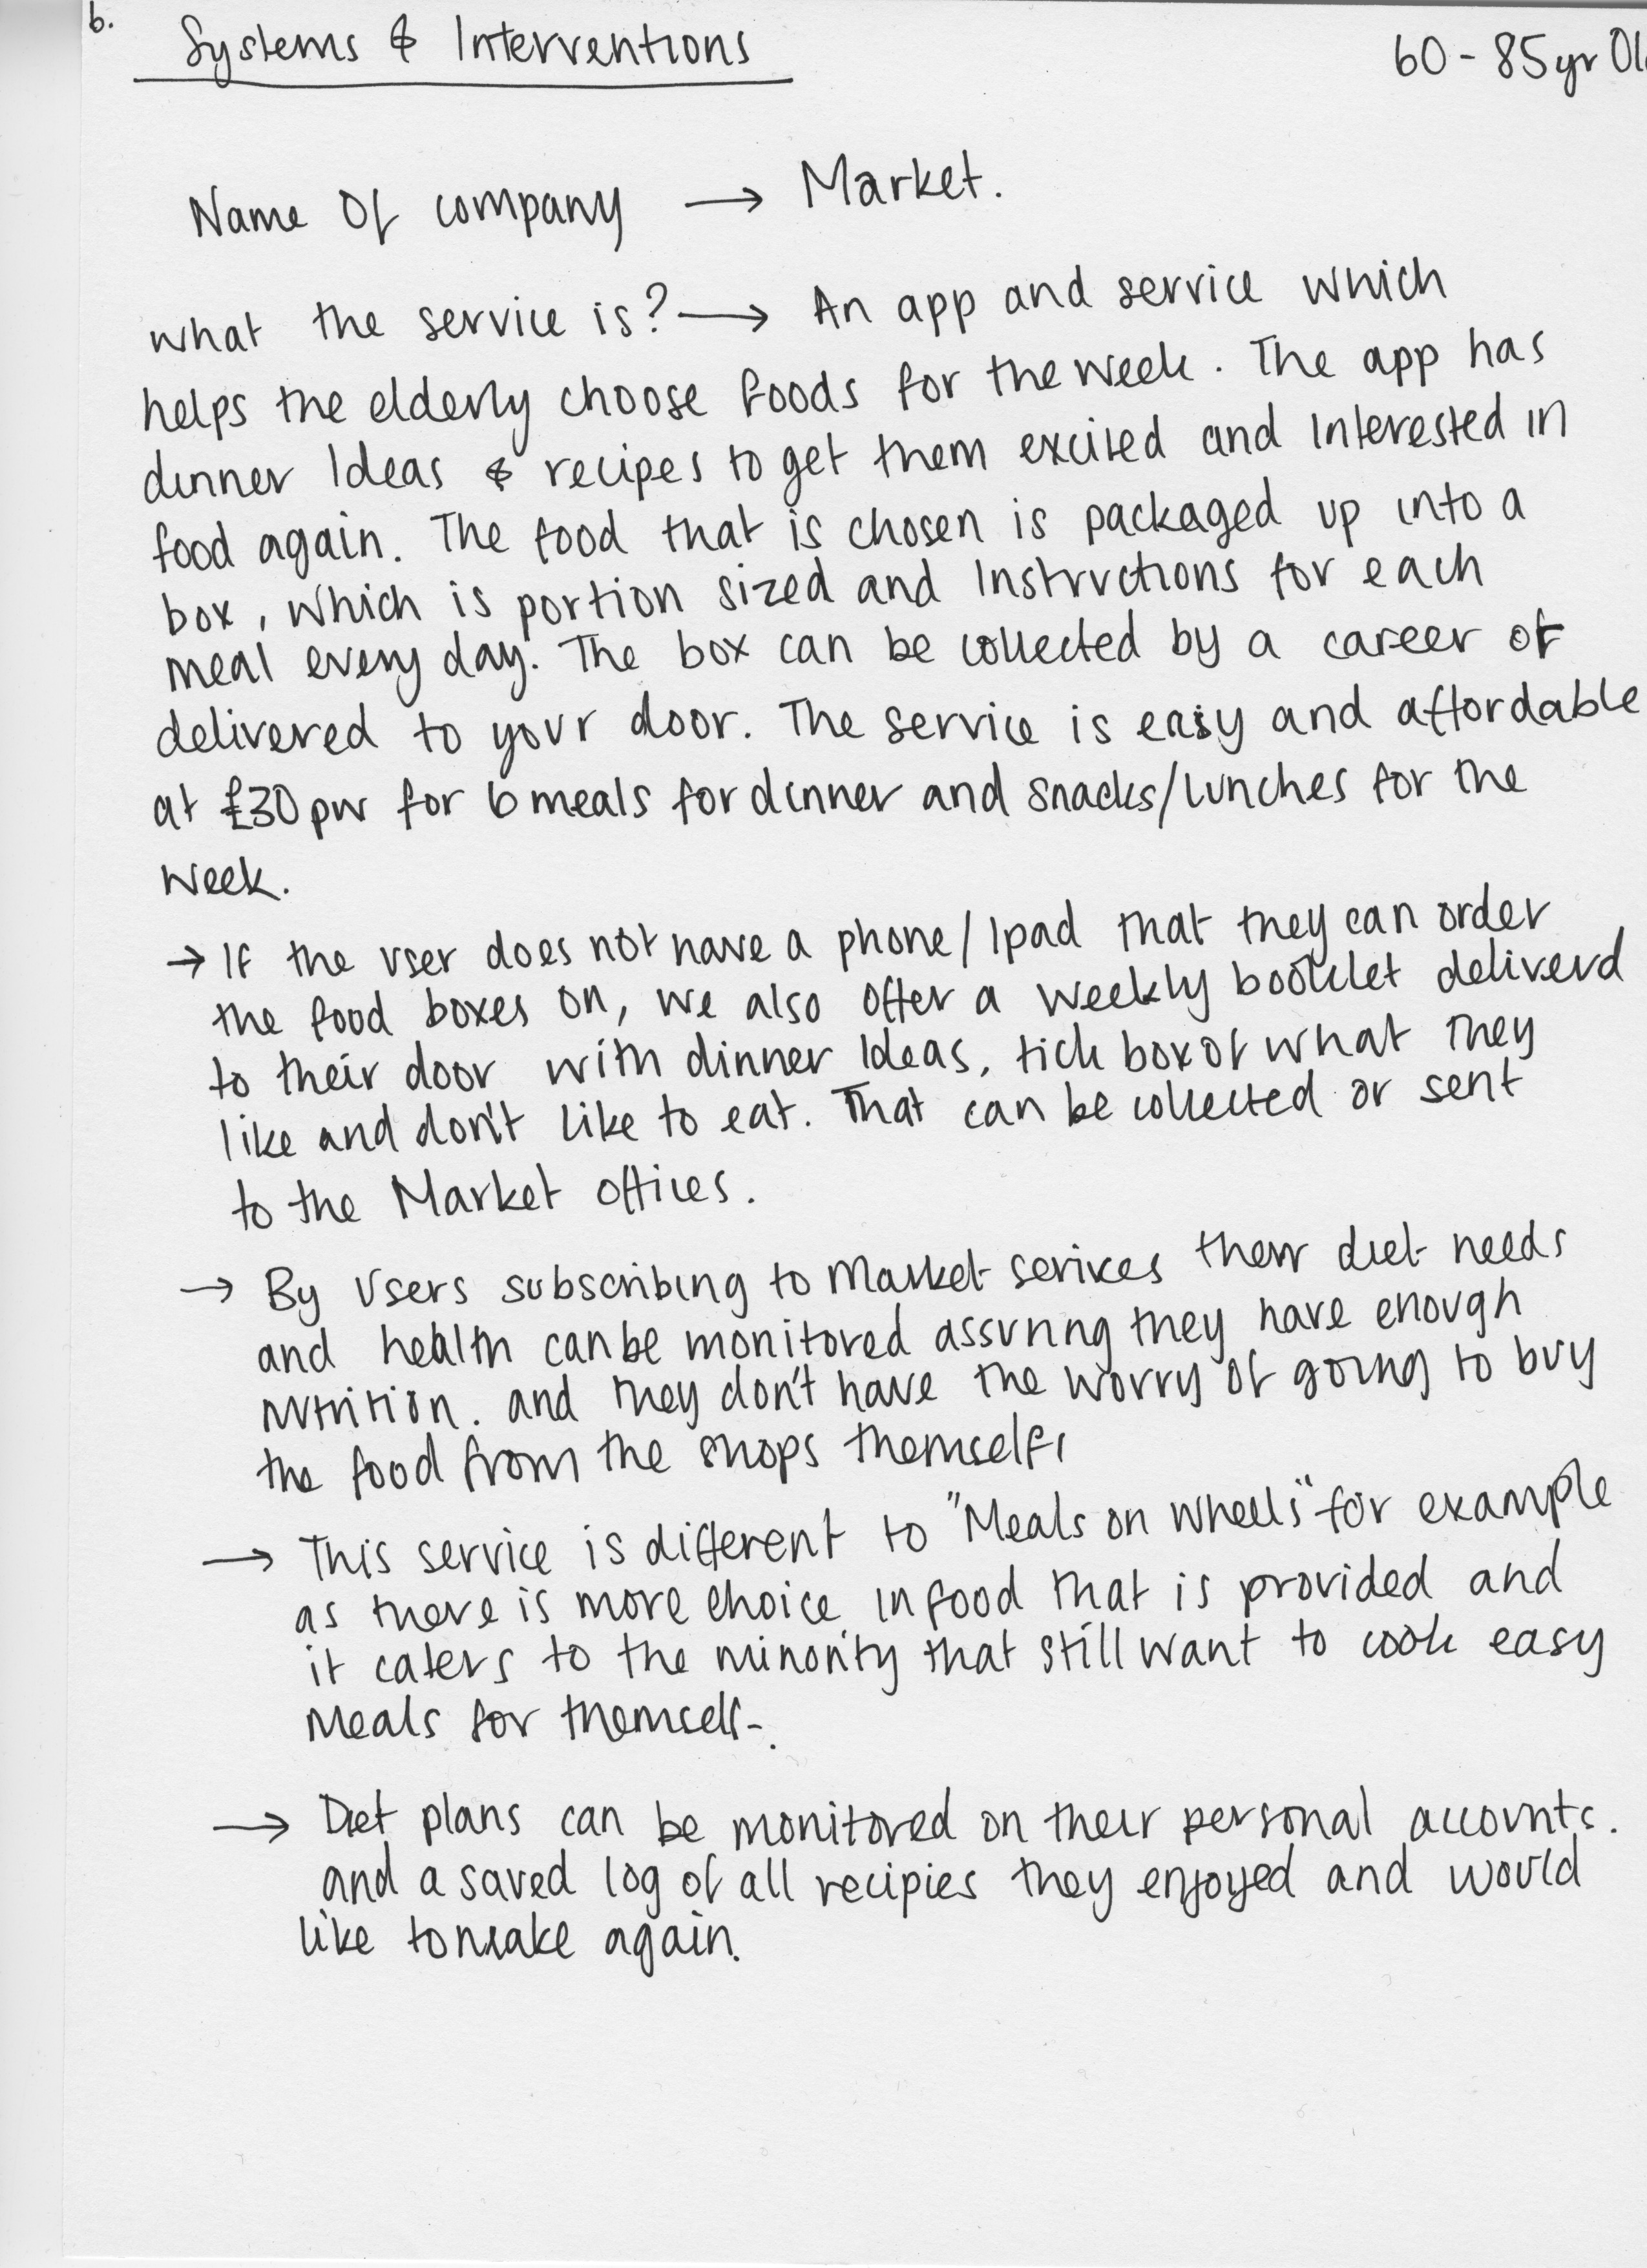 6.
Systems & Interventions
60 - 85yr Ol
Name Of company → Market.
what the service is? → An app and service which
helps the elderly choose foods for the week. The app has
dinner Ideas & recipes to get them excited and Interested in
food again. The food that is chosen is packaged up into a
box, which is portion sized and Instructions for each
meal every day. The box can be collected by a career or
delivered to your door. The service is easy and affordable
at £30pw for 6 meals for dinner and snacks/lunches for the
week.
→ If the user does not have a phone/Ipad that they can order
the food boxes on, we also offer a weekly booklet deliverd
to their door with dinner Ideas, tick box of what they
like and don't like to eat. That can be collected or sent
to the Market offices.
→ By Users subscribing to Market serivces their diet needs
and health can be monitored assuring they have enough
nutrition. and they don't have the worry of going to buy
the food from the shops themself,
→ This service is different to "Meals on wheels" for example
as there is more choice in food that is provided and
it caters to the minority that still want to cook easy
meals for themself-.
→ Diet plans can be monitored on their personal accounts.
and a saved log of all recipies they enjoyed and would
like to make again.